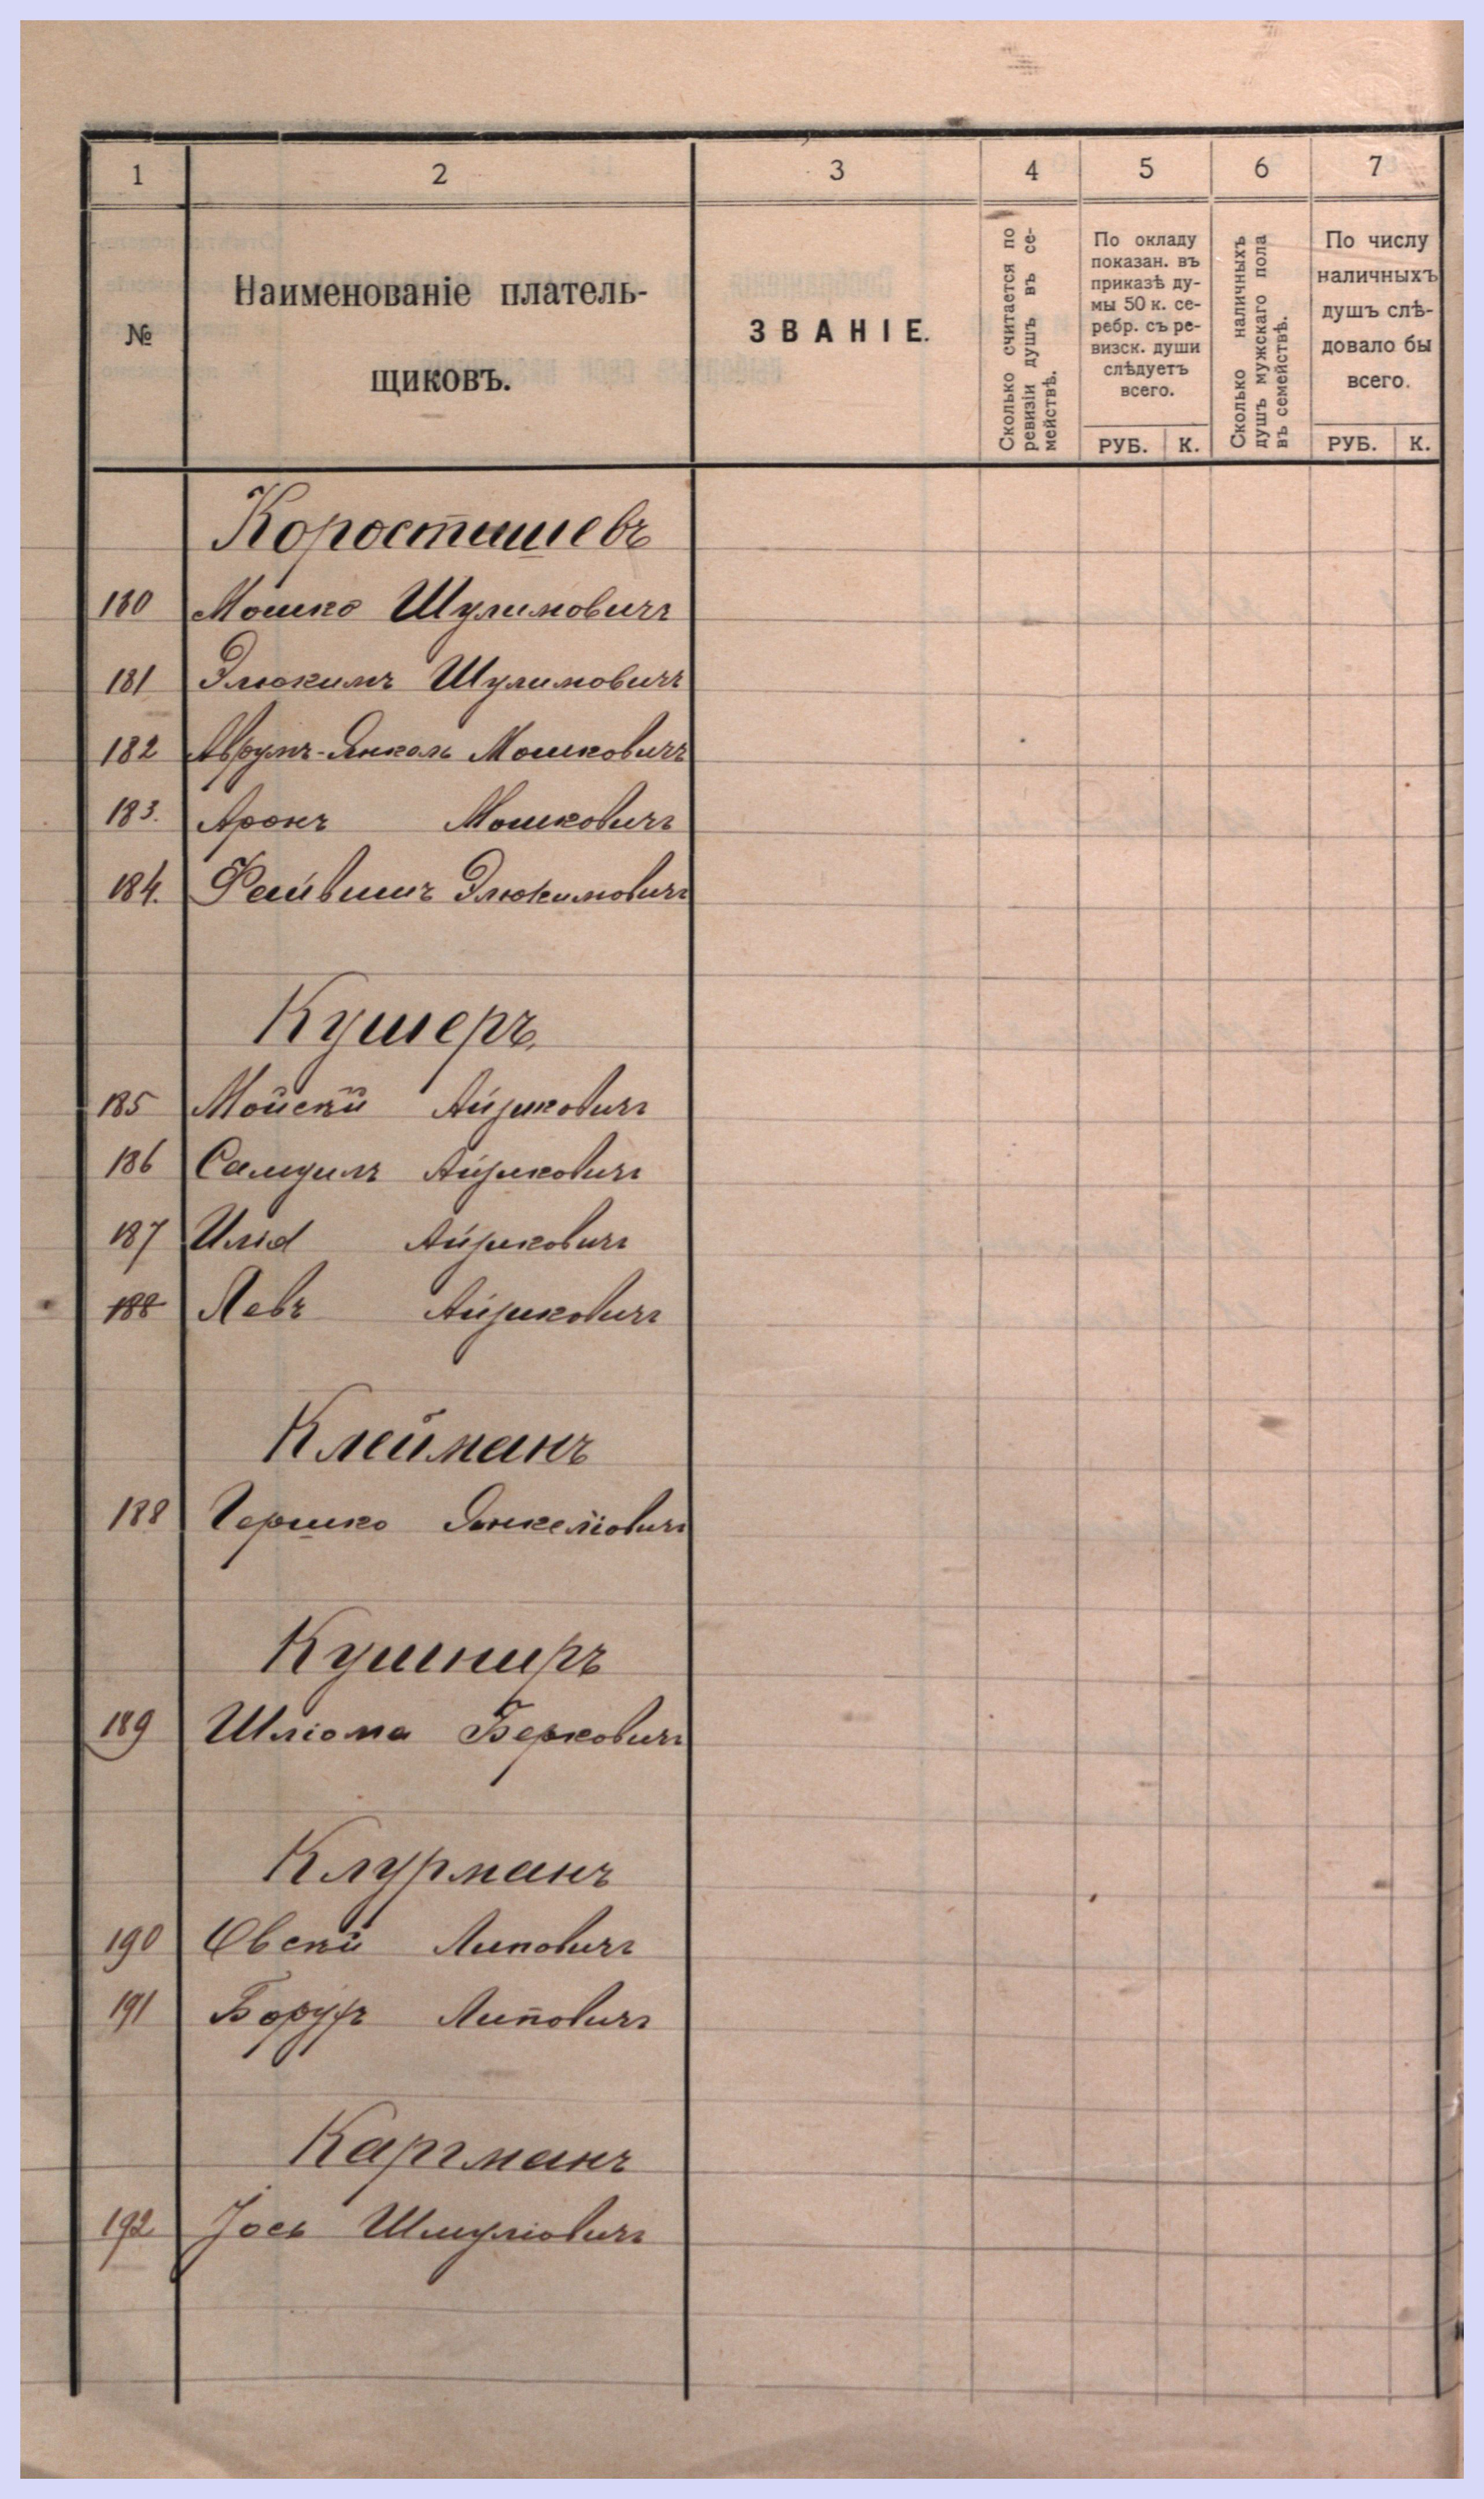 1 2 3 4 5 6 7
№
Наименованіе платель-
щиковъ.
ЗВАНІЕ.
Сколько считается по
ревизіи душъ въ се-
мействѣ.
По окладу
показан. въ
приказѣ ду-
мы 50 к. се-
ребр. съ ре-
визск. души
слѣдуетъ
всего.
РУБ. К.
Сколько наличныхъ
душъ мужскаго пола
въ семействѣ.
По числу
наличныхъ
душъ слѣ-
довало бы
всего.
РУБ. К.
Коростишевъ
180 Мошко Шулимовичъ
181 Элюкимъ Шулимовичъ
182 Аврумъ-Янкель Мошковичъ
183. Аронъ Мошковичъ
184. Файвишъ Элюкимовичъ
Кушеръ.
185 Мойсѣй Айзиковичъ
186 Самуилъ Айзиковичъ
187 Илія Айзиковичъ
188 Левъ Айзиковичъ
Клейманъ
188 Гершко Янкеліовичъ
Кушниръ
189 Шліома Берковичъ
Клурманъ
190 Овсѣй Липовичъ
191 Борухъ Липовичъ
Каргманъ
192 Іось Шмуліовичъ